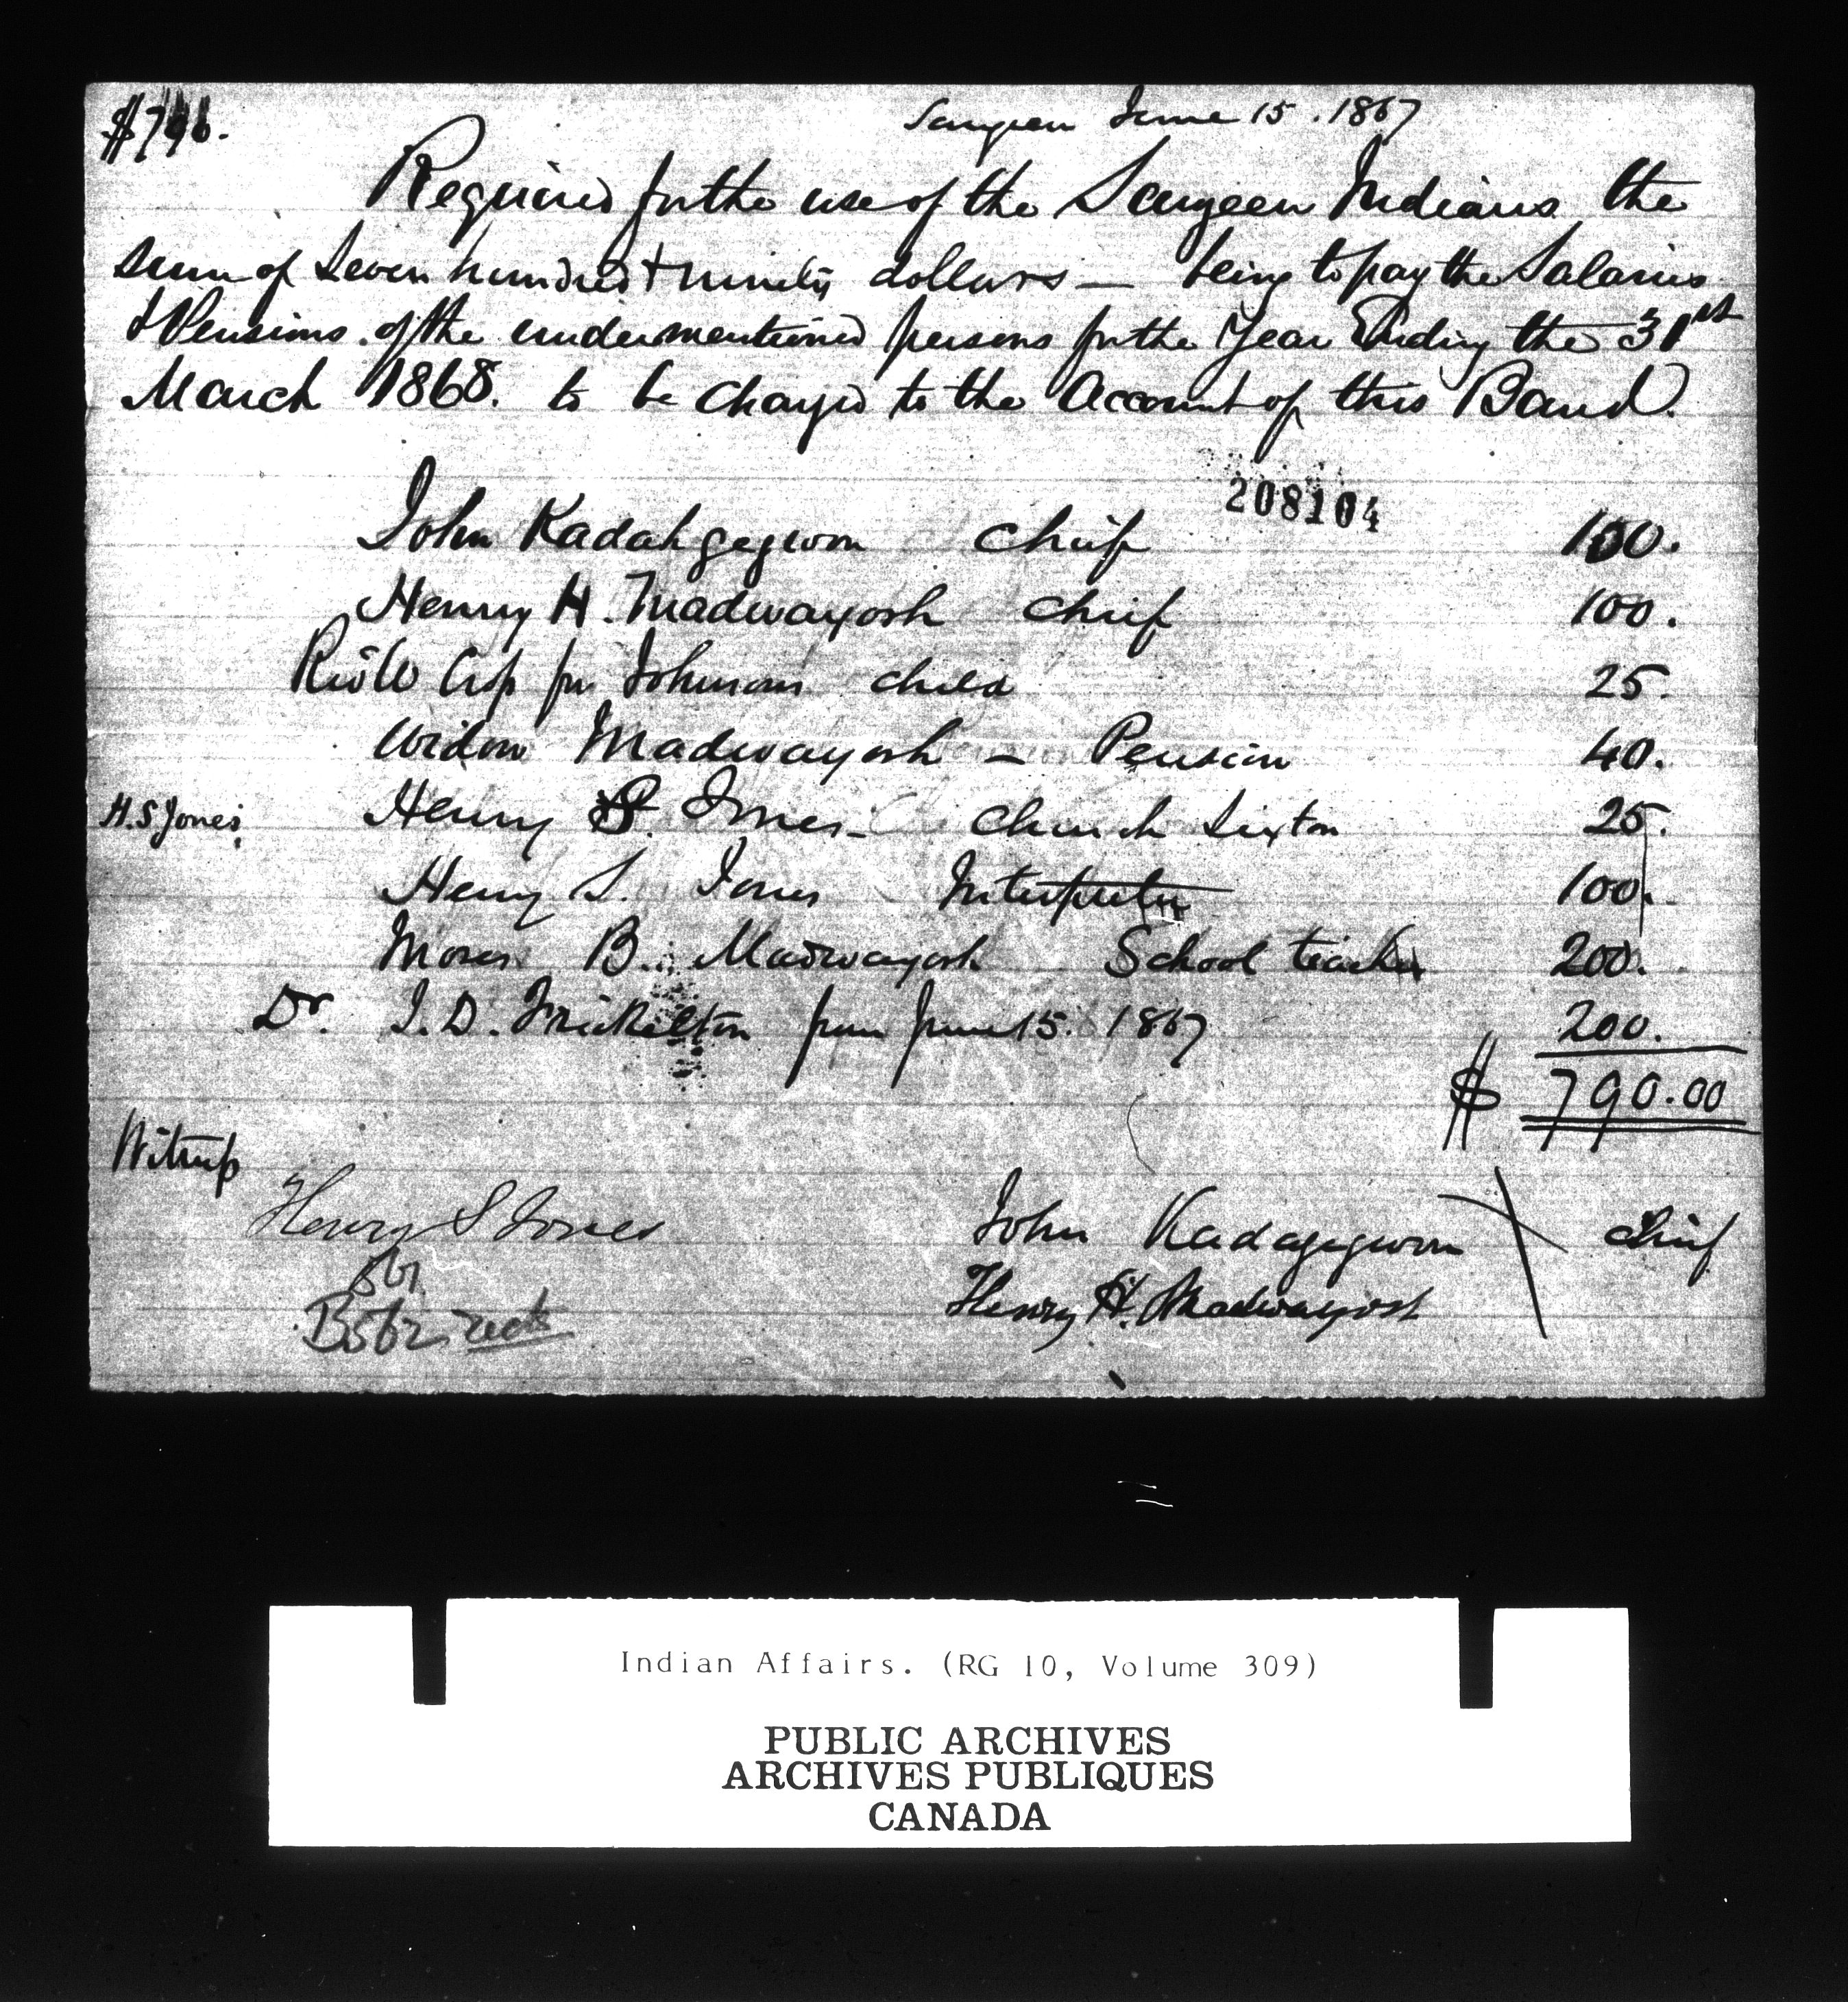 $790.
Saugeen June 15. 1867
Required for the use of the Saugeen Indians the
sum of Seven hundred + ninety dollars — being to pay the Salaries
& Pensions of the undermentioned persons for the Year Ending the 31st
March 1868. to be charged to the Account of this Band.
208104
John Kadahgegwon Chief 100.
Henry H. Madwayosh Chief 100.
for Johnsons child 25.
Widow Madwayosh — Pension 40.
H.S Jones Henry Jones — Church Sexton 25.
Henry S. Jones Interpreter 100.
Moses B. Madwayosh School teacher 200.
Dr. from June 15. 1867 200.
$ 790.00
Witness
Henry S Jones
John Kadagegwon Chief
Henry H. Madwayosh
Indian Affairs. (RG 10, Volume 309)
PUBLIC ARCHIVES
ARCHIVES PUBLIQUES
CANADA